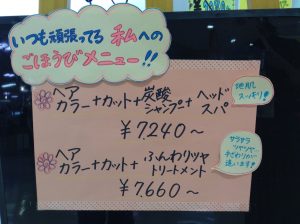 いつも頑張ってる 私への
ごほうびメニュー!!
ヘア
カラー+カット+炭酸
シャンプ+ヘッド
スパ
¥7,240~
地肌
スッキリ!
ヘア
カラー+カット+ふんわりツヤ
トリートメント
¥7,660~
サラサラ
ツヤツヤ
手ざわりが
違います!!